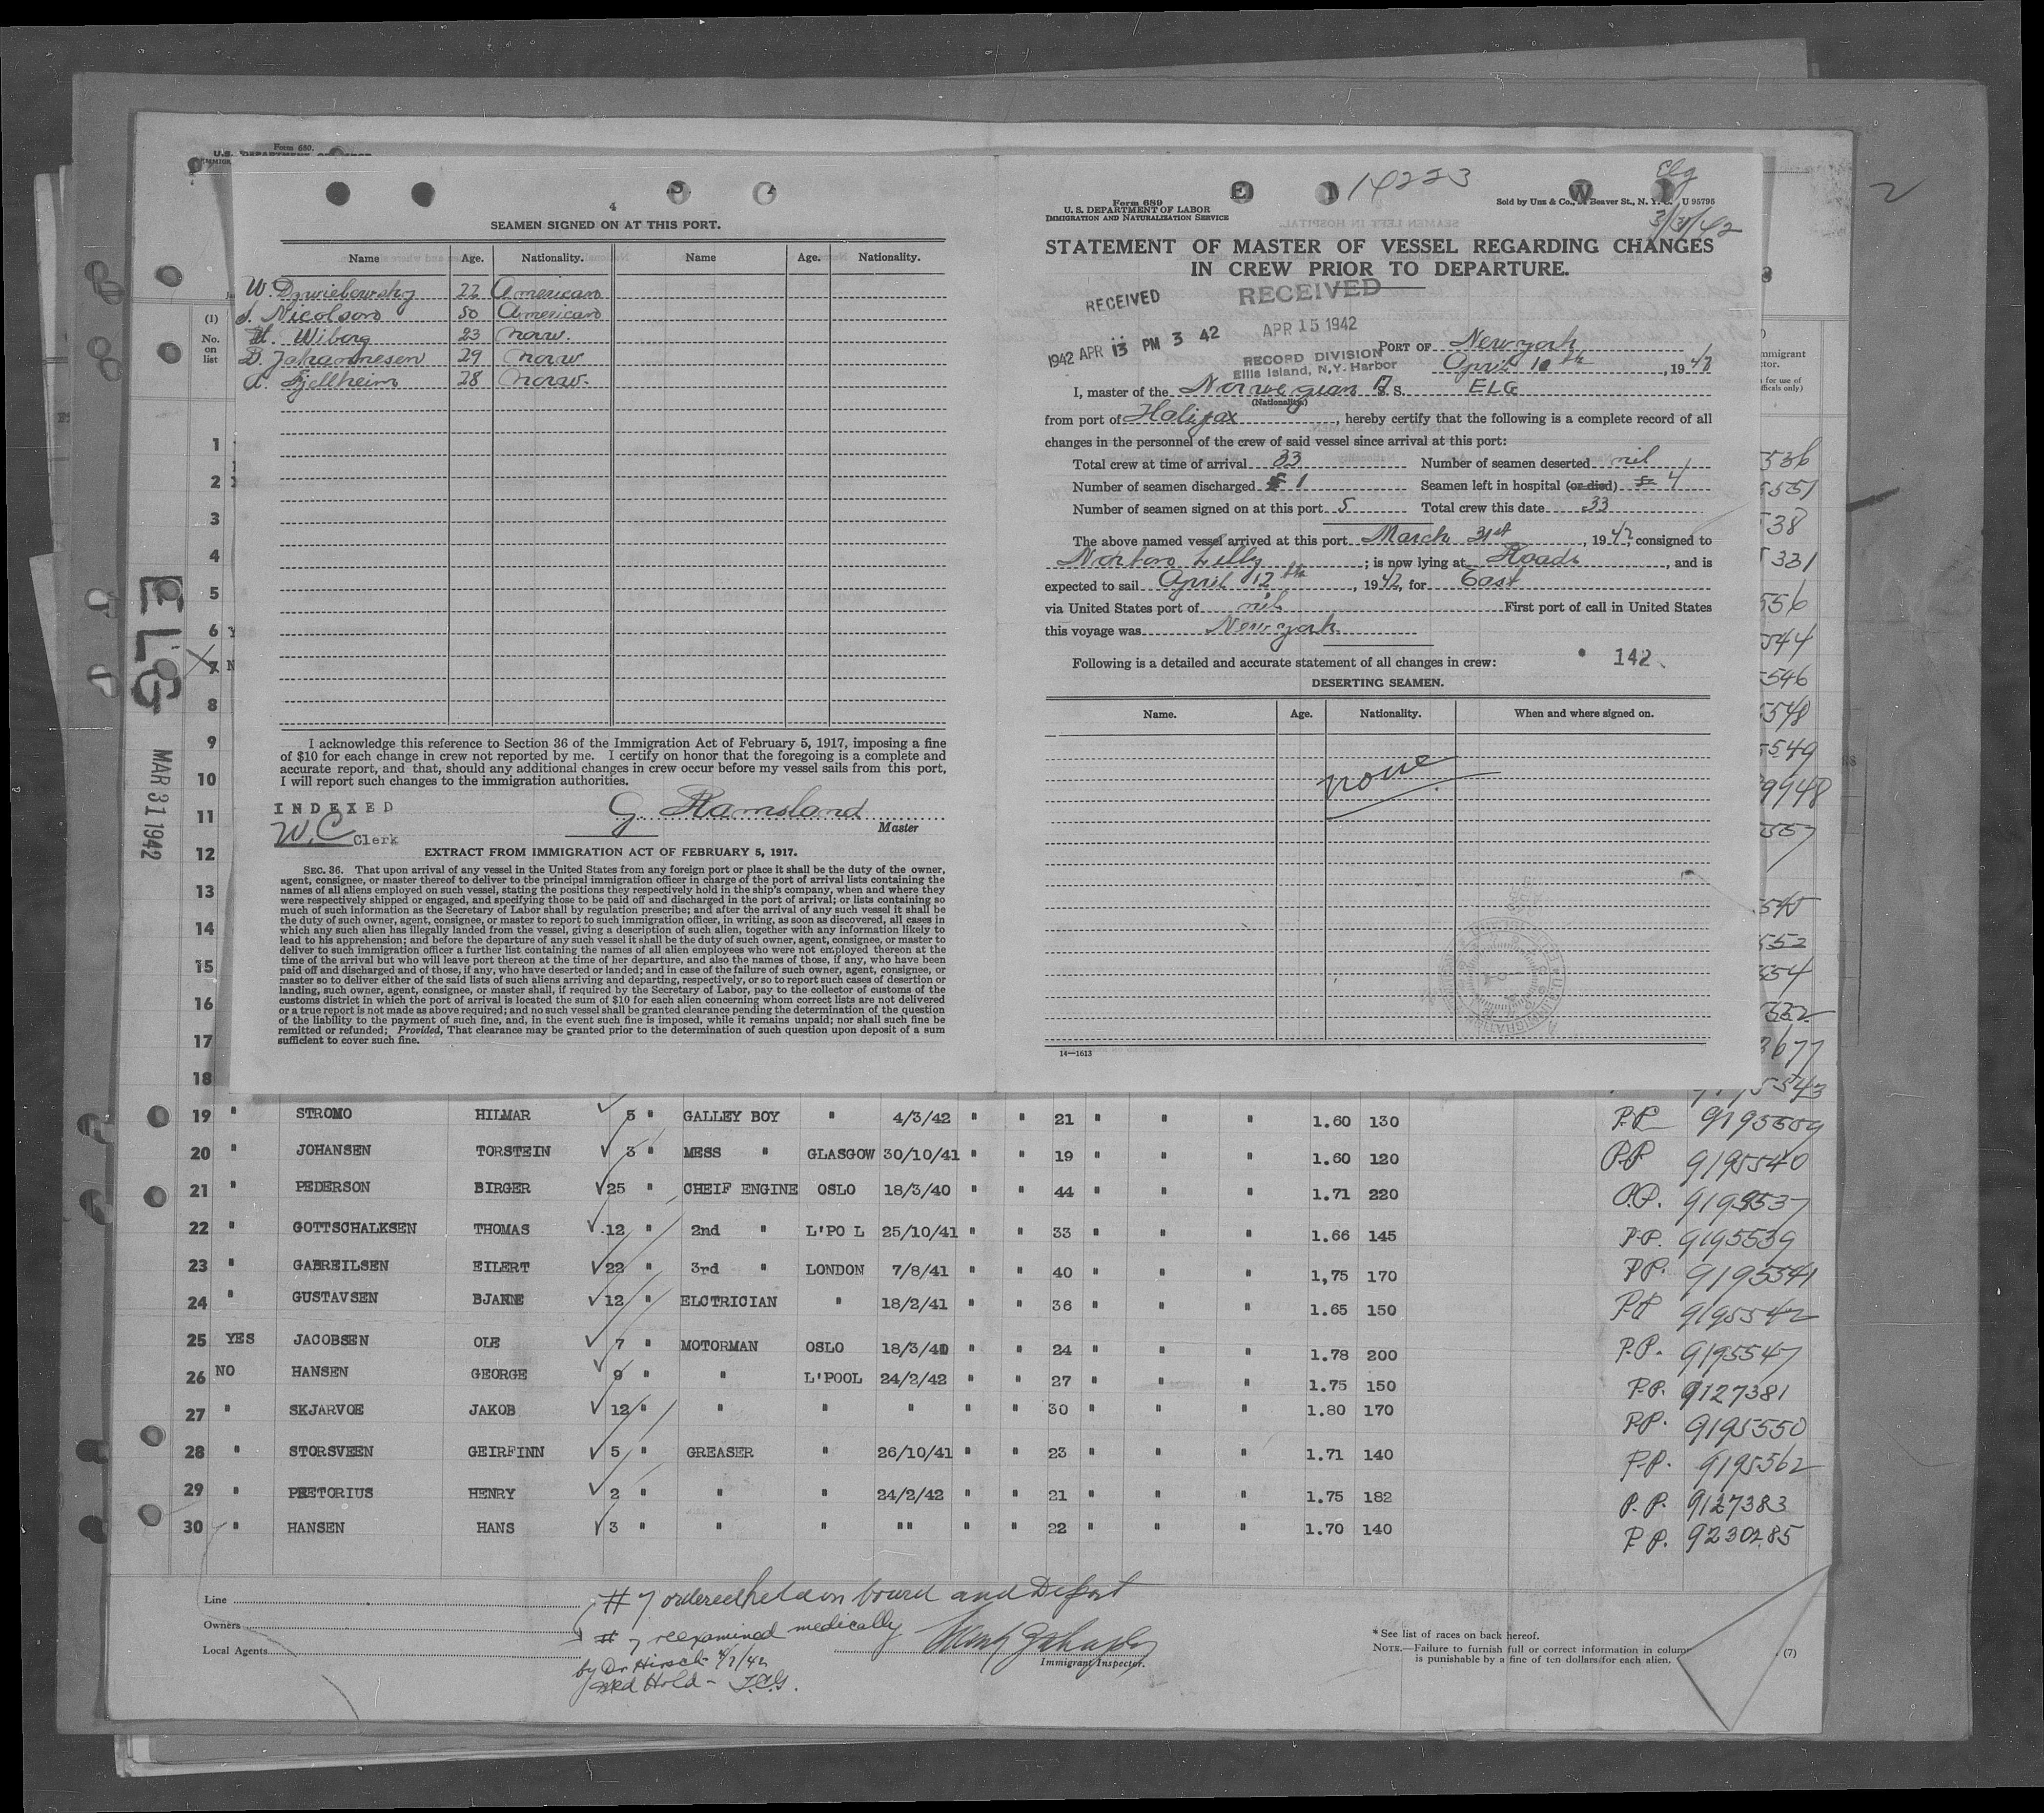 Form 680.
4
SEAMEN SIGNED ON AT THIS PORT.
Name Age. Nationality. Name Age. Nationality.
W. Dzwielowsky 22 American
Nicolson 50 American
H. Wiborg 23 norw.
D. Johannesen 29 norw
A. Fjellheim 28 norw.
I acknowledge this reference to Section 36 of the Immigration Act of February 5, 1917, imposing a fine
of $10 for each change in crew not reported by me. I certify on honor that the foregoing is a complete and
accurate report, and that, should any additional changes in crew occur before my vessel sails from this port,
I will report such changes to the immigration authorities.
INDEXED
W.C Clerk
G. Ramsland
Master
EXTRACT FROM IMMIGRATION ACT OF FEBRUARY 5, 1917.
SEC. 36. That upon arrival of any vessel in the United States from any foreign port or place it shall be the duty of the owner,
agent, consignee, or master thereof to deliver to the principal immigration officer in charge of the port of arrival lists containing the
names of all aliens employed on such vessel, stating the positions they respectively hold in the ship's company, when and where they
were respectively shipped or engaged, and specifying those to be paid off and discharged in the port of arrival; or lists containing so
much of such information as the Secretary of Labor shall by regulation prescribe; and after the arrival of any such vessel it shall be
the duty of such owner, agent, consignee, or master to report to such immigration officer, in writing, as soon as discovered, all cases in
which any such alien has illegally landed from the vessel, giving a description of such alien, together with any information likely to
lead to his apprehension; and before the departure of any such vessel it shall be the duty of such owner, agent, consignee, or master to
deliver to such immigration officer a further list containing the names of all alien employees who were not employed thereon at the
time of the arrival but who will leave port thereon at the time of her departure, and also the names of those, if any, who have been
paid off and discharged and of those, if any, who have deserted or landed; and in case of the failure of such owner, agent, consignee, or
master so to deliver either of the said lists of such aliens arriving and departing, respectively, or so to report such cases of desertion or
landing, such owner, agent, consignee, or master shall, if required by the Secretary of Labor, pay to the collector of customs of the
customs district in which the port of arrival is located the sum of $10 for each alien concerning whom correct lists are not delivered
or a true report is not made as above required; and no such vessel shall be granted clearance pending the determination of the question
of the liability to the payment of such fine, and, in the event such fine is imposed, while it remains unpaid; nor shall such fine be
remitted or refunded; Provided, That clearance may be granted prior to the determination of such question upon deposit of a sum
sufficient to cover such fine.
14223
Elg
3/31/42
Form 689
U. S. DEPARTMENT OF LABOR
IMMIGRATION AND NATURALIZATION SERVICE
Sold by Unz & Co., Beaver St., N. Y. U 95795
STATEMENT OF MASTER OF VESSEL REGARDING CHANGES
IN CREW PRIOR TO DEPARTURE.
RECEIVED
1942 APR 13 PM 3 42
RECEIVED
APR 15 1942
RECORD DIVISION
Ellis Island, N.Y. Harbor
PORT OF New york
April 10th, 1942
I, master of the Norwegian M. S. ELG
(Nationality)
from port of Halifax, hereby certify that the following is a complete record of all
changes in the personnel of the crew of said vessel since arrival at this port:
Total crew at time of arrival 33 Number of seamen deserted nil
Number of seamen discharged 1 Seamen left in hospital (or died) 4
Number of seamen signed on at this port 5 Total crew this date 33
The above named vessel arrived at this port March 31st, 1942, consigned to
Norton Lilly; is now lying at Roads, and is
expected to sail April 12th, 1942, for East
via United States port of nil First port of call in United States
this voyage was New york
Following is a detailed and accurate statement of all changes in crew: 142
DESERTING SEAMEN.
Name. Age. Nationality. When and where signed on.
none
14—1613
ELG
MAR 31 1942
2
(1)
No.
on
list
1
2
3
4
5
6
7
8
9
10
11
12
13
14
15
16
17
18
19 " STROMO HILMAR 5 " GALLEY BOY " 4/3/42 " " 21 " " " 1.60 130 P.P 9195559
20 " JOHANSEN TORSTEIN 3 " MESS " GLASGOW 30/10/41 " " 19 " " " 1.60 120 P.P 9195540
21 " PEDERSON BIRGER 25 " CHEIF ENGINE OSLO 18/3/40 " " 44 " " " 1.71 220 P.P. 9195537
22 " GOTTSCHALKSEN THOMAS 12 " 2nd " L'PO L 25/10/41 " " 33 " " " 1.66 145 P.P. 9195539
23 " GABREILSEN EILERT 22 " 3rd " LONDON 7/8/41 " " 40 " " " 1,75 170 P.P. 9195541
24 " GUSTAVSEN BJANNE 12 " ELCTRICIAN " 18/2/41 " " 36 " " " 1.65 150 P.P 9195542
25 YES JACOBSEN OLE 7 " MOTORMAN OSLO 18/3/40 " " 24 " " " 1.78 200 P.P. 9195547
26 NO HANSEN GEORGE 9 " " L'POOL 24/2/42 " " 27 " " " 1.75 150 P.P. 9127381
27 " SKJARVOE JAKOB 12 " " " " " " 30 " " " 1.80 170 P.P. 9195550
28 " STORSVEEN GEIRFINN 5 " GREASER " 26/10/41 " " 23 " " " 1.71 140 P.P. 9195562
29 " PRETORIUS HENRY 2 " " " 24/2/42 " " 21 " " " 1.75 182 P.P. 9127383
30 " HANSEN HANS 3 " " " "" " " 22 " " " 1.70 140 P.P. 9230285
Line
Owners
Local Agents
# 7 ordered held on board and Deport
# 7 reexamined medically
by Dr Hirsch 4/7/42
Med Hold - J.C.G.
Immigrant Inspector.
* See list of races on back hereof.
NOTE.—Failure to furnish full or correct information in colum
is punishable by a fine of ten dollars for each alien.
(7)